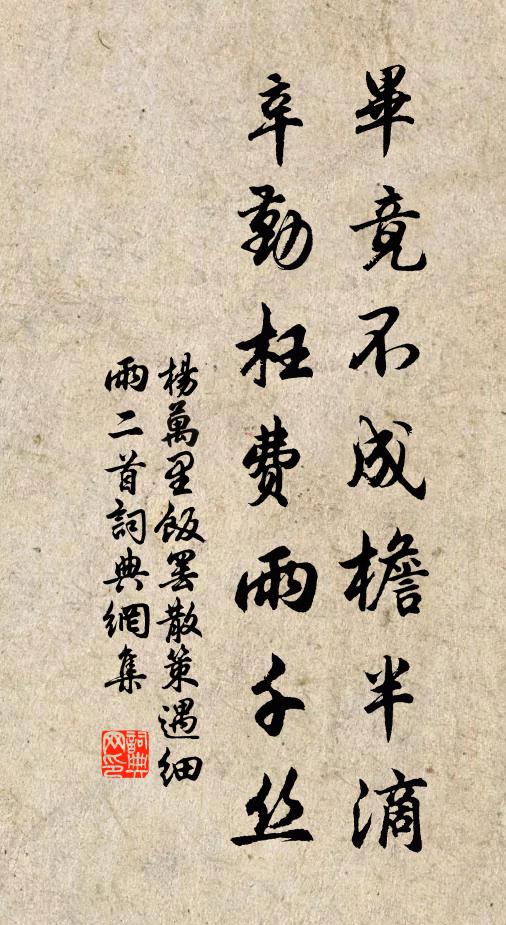 畢竟不成檐半滴
辛勤枉費雨千丝
楊萬里飯罢散策遇细
雨二首詞典網集
詞典
网印